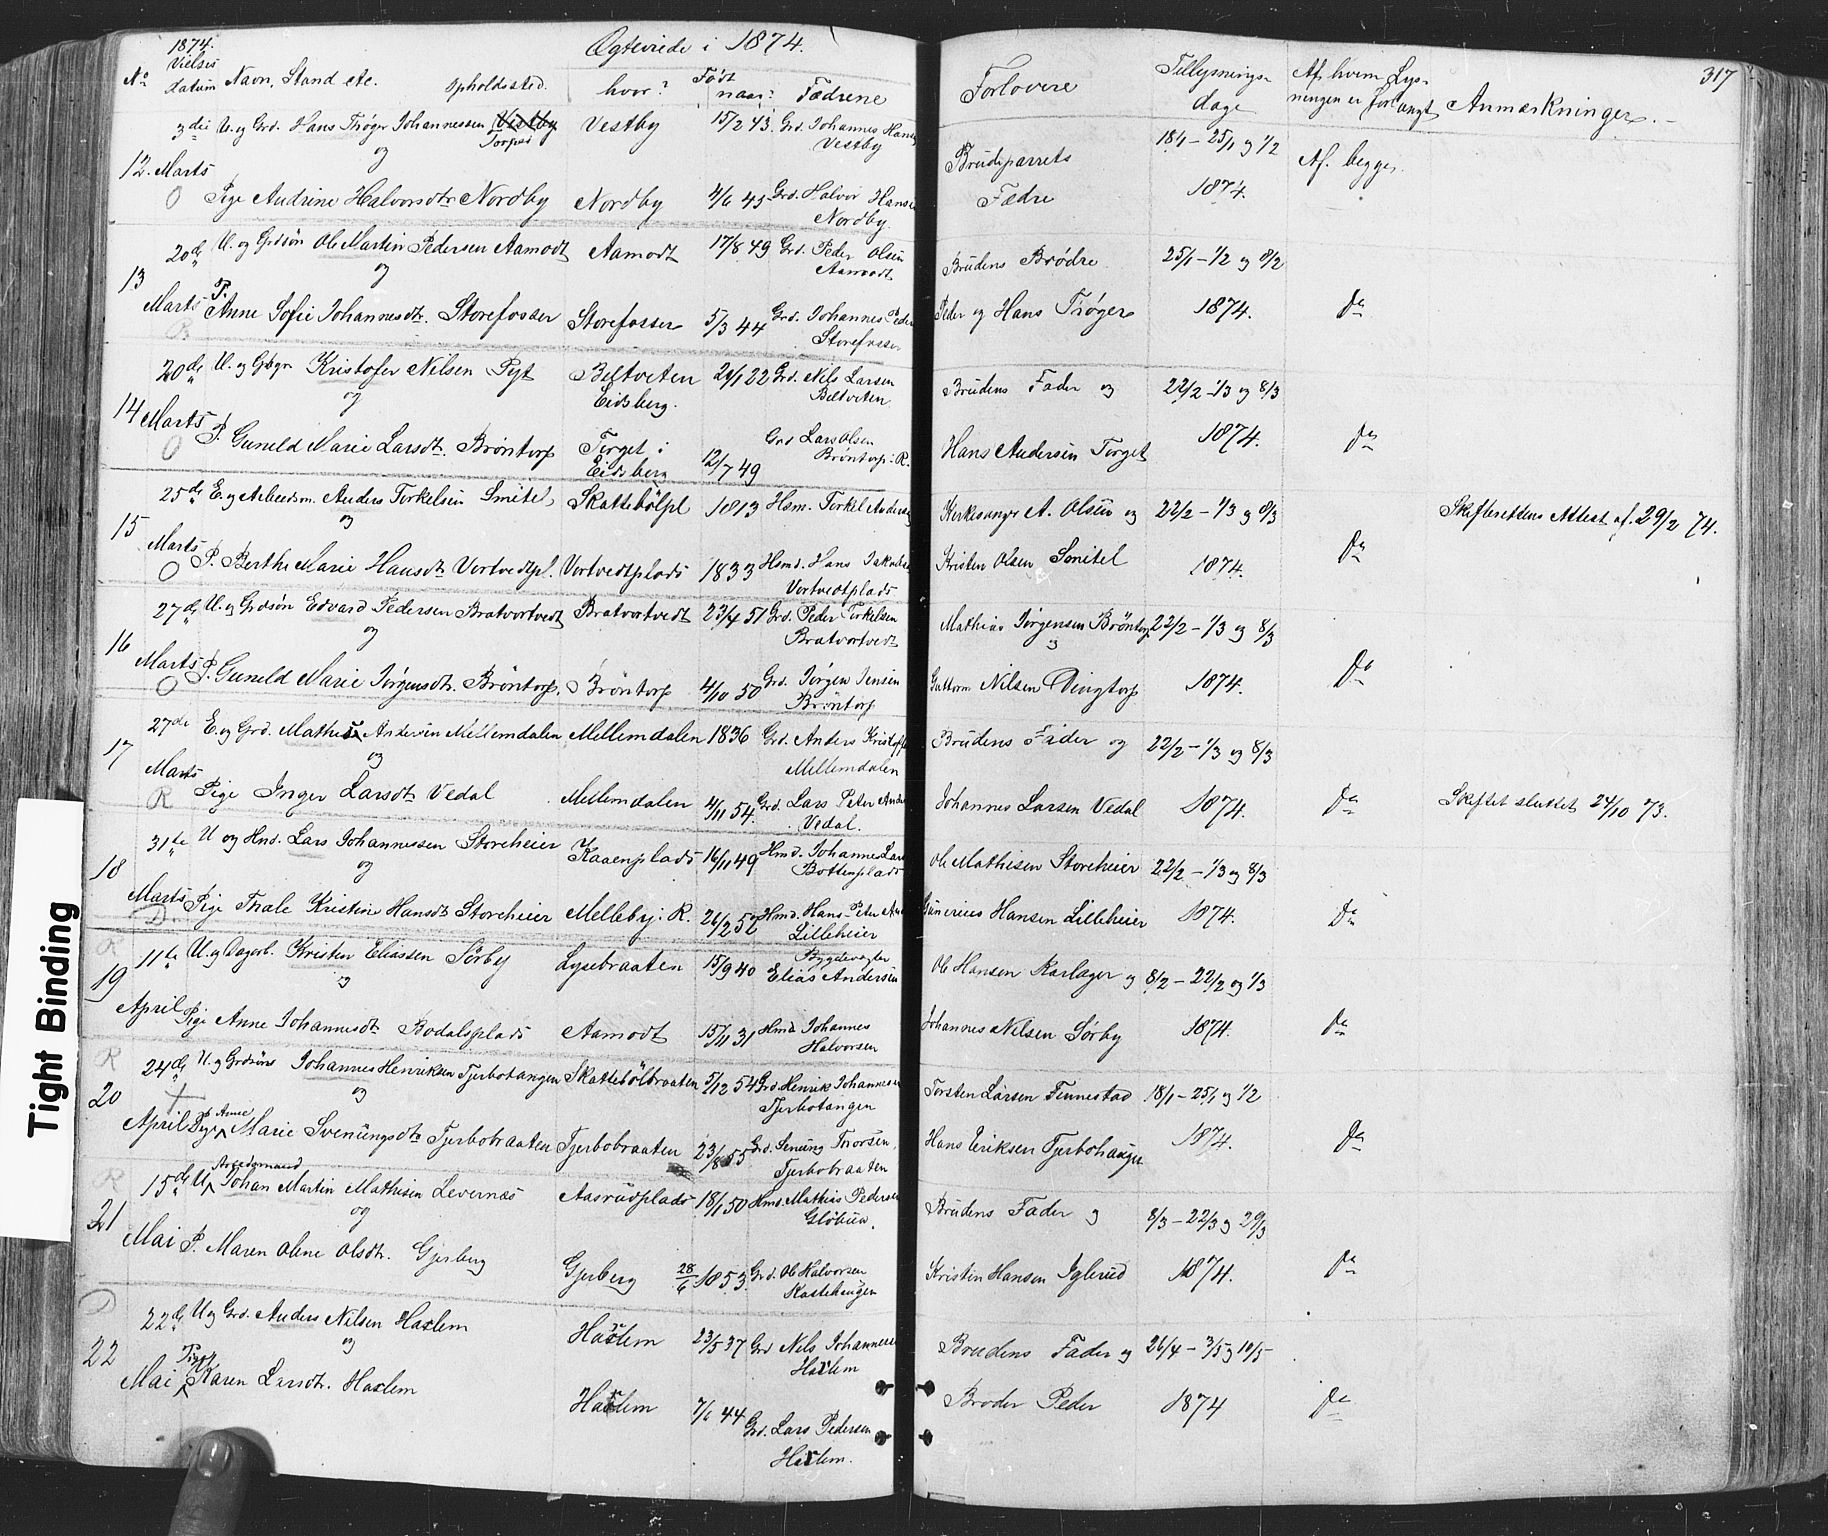 1874.
Ægteviede i 1874.
No Vielses datum Navn, Stand etc. Opholdssted. hvor? Født naar? Fædrene
Forlovere Tillysnings- dage Af hvem Lys- ningen er forlangt Anmærkninger. 317
3die U. og Grd. Hans Trøger Johannessen Vestby Torper Vestby 15/2 43 Grd. Johannes Hans Vestby
og
12. Marts
O Pige Andrine Halvorsdtr Nordby Nordby 4/6 45 Grd. Halvor Hansen Nordby
Brudeparrets Fædre 18/1 - 25/1 og 1/2 1874. Af begge.
20de U. og Grdsøn Ole Martin Pedersen Aamodt Aamodt 17/8 49 Grd. Peder Olsen Aamodt
og
13
Marts P. Anne Sofie Johannesdtr. Storefosser Storefosser 5/3 44 Grd. Johannes Peder Storefosser
R
Brudens Brødre 25/1 - 1/2 og 8/2
Peder og Hans Trøger 1874. Do
20de U. og Gbgr Kristofer Nilsen Pyt Beltveten Eidsberg. 24/1 22 Grd. Nils Larsen Beltveten
og
14 Marts
O P. Gunild Marie Larsdtr. Brøntorp Torget i Eidsberg 12/7 49 Grd Lars Olsen Brøntorp: R.
Brudens Fader og 22/2 - 1/3 og 8/3
Hans Andersen Torget 1874. Do
25de E. og Arbeidsm. Anders Torkelsen Smitel, Skattebølpl 1813 Hsm. Torkel Andersen
og
15
Marts
O P. Berthe Marie Hansdtr Vortvedtpl. Vortvedtplads 1833 Hsmd. Hans Jakobs Vortvedtplads
Kirkesanger A. Olsen og 22/2 - 1/3 og 8/3 Skifterettens Attest af 29/2 74.
Kristen Olsen Smitel 1874. Do
27de U. og Grdsøn Edvard Pedersen Bratvortvedt Bratvortvedt 23/4 51 Grd. Peder Torkelsen Bratvortvedt
og
16
Marts
O P. Gunild Marie Jørgensdtr. Brøntorp. Brøntorp 4/10 50 Grd. Jørgen Jensen Brøntorp
Mathias Jørgensen Brøntorp 22/2 - 1/3 og 8/3
og
Guttorm Nilsen Dingtorp 1874. Do
27de E. og Grd. Mathias Andersen Mellemdalen Mellemdalen 1836 Grd. Anders Kristoffe Mellemdalen
og
17
Marts
R Pige Inger Larsdtr Vedal Mellemdalen 4/11 54. Grd. Lars Peter Ande Vedal.
Brudens Fader og 22/2 - 1/3 og 8/3
Johannes Larsen Vedal 1874. Do Skiftet sluttet 24/10 73.
31te U og Hmd. Lars Johannessen Storeheier Kaaenplads 16/11 49 Hmd. Johannes Lars Bottenplads
og
18
Marts
D. Pige Thale Kristine Hansdtr Storeheier Melleby: R. 26/2 52 Hmd. Hans Peter And Lilleheier
Ole Mathisen Storeheier 22/2 - 1/3 og 8/3
Gunerius Hansen Lilleheier 1874. Do
R
11te U. og Dagarb. Kristen Eliassen Sørby Lysebraaten 15/9 40 Bygdevægter Elias Andersen
og
19
April Pige Anne Johannesdtr Bodalsplads Aamodt 15/11 31 Hmd Johannes Halvorsen
Ole Hansen Karlager og 8/2 - 22/2 og 1/3
Johannes Nilsen Sørby 1874. Do
R
24de U. og Grdsøn Johannes Henriksen Tjerbotangen Skattebølbraaten 5/12 54 Grd Henrik Johannessen Tjerbotangen
og
20
April Pige Anne Marie Svenungsdtr Tjerbobraaten Tjerbobraaten 23/8 55 Grd. Senung Thorsen, Tjerbobraaten
Torsten Larsen Finnestad 18/1 - 25/1 og 1/2
Hans Eriksen Tjerbohaugen 1874. Do
R
15de U. Arbeidsmand Johan Martin Mathisen Levernæs Aasrudplads 18/1 50 Hmd Mathias Pedersen Gløbua.
og
21
Mai P. Maren Oline Olsdtr. Gjerberg Gjerberg 28/6 1853. Grd. Ole Halvorsen Kastehaugen
Brudens Fader og 8/3 - 22/3 og 29/3
Kristen Hansen Iglerud 1874. Do
22de U og Grd. Anders Nilsen Haslem Haslem 23/5 37 Grd Nils Johannesen Haslem
og
22
Mai Pige Karen Larsdtr. Haslem Haslem 7/6 44 Grd. Lars Pedersen Haslem.
Brudens Fader og 26/4 - 3/5 og 10/5
Broder Peder 1874 Do
Tight Binding